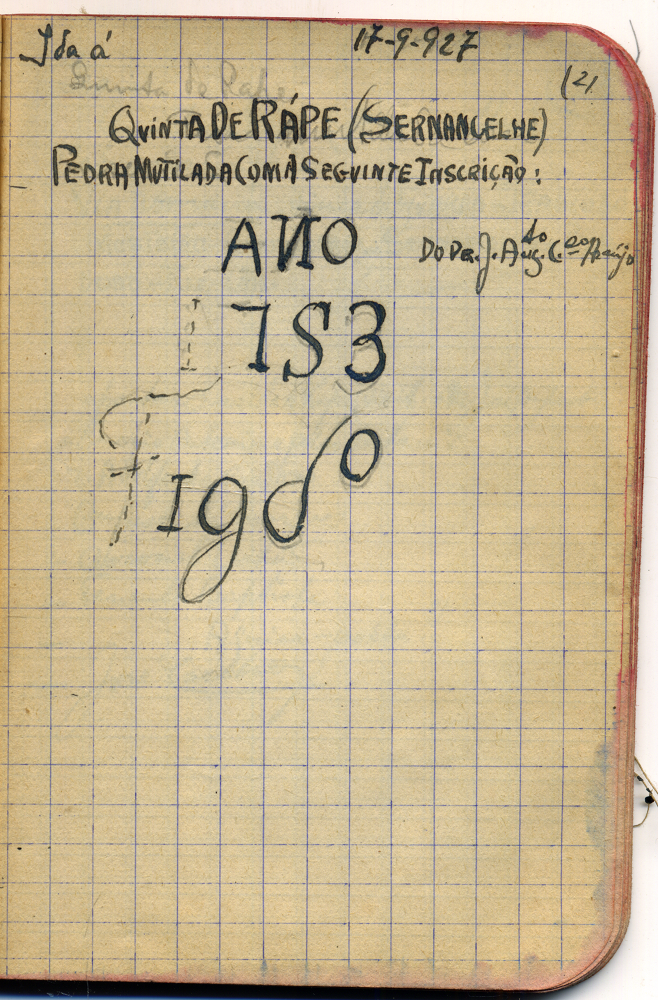 Ida á 17-9-927
(21
Quinta de Rápe
QVINTA DE RÁPE (SERNANCELHE)
PEDRA MUTILADA COM A SEGVINTE INSCRIÇÃO:
ANO
Do Dr. J. Aug.to C.
1753
Figdº